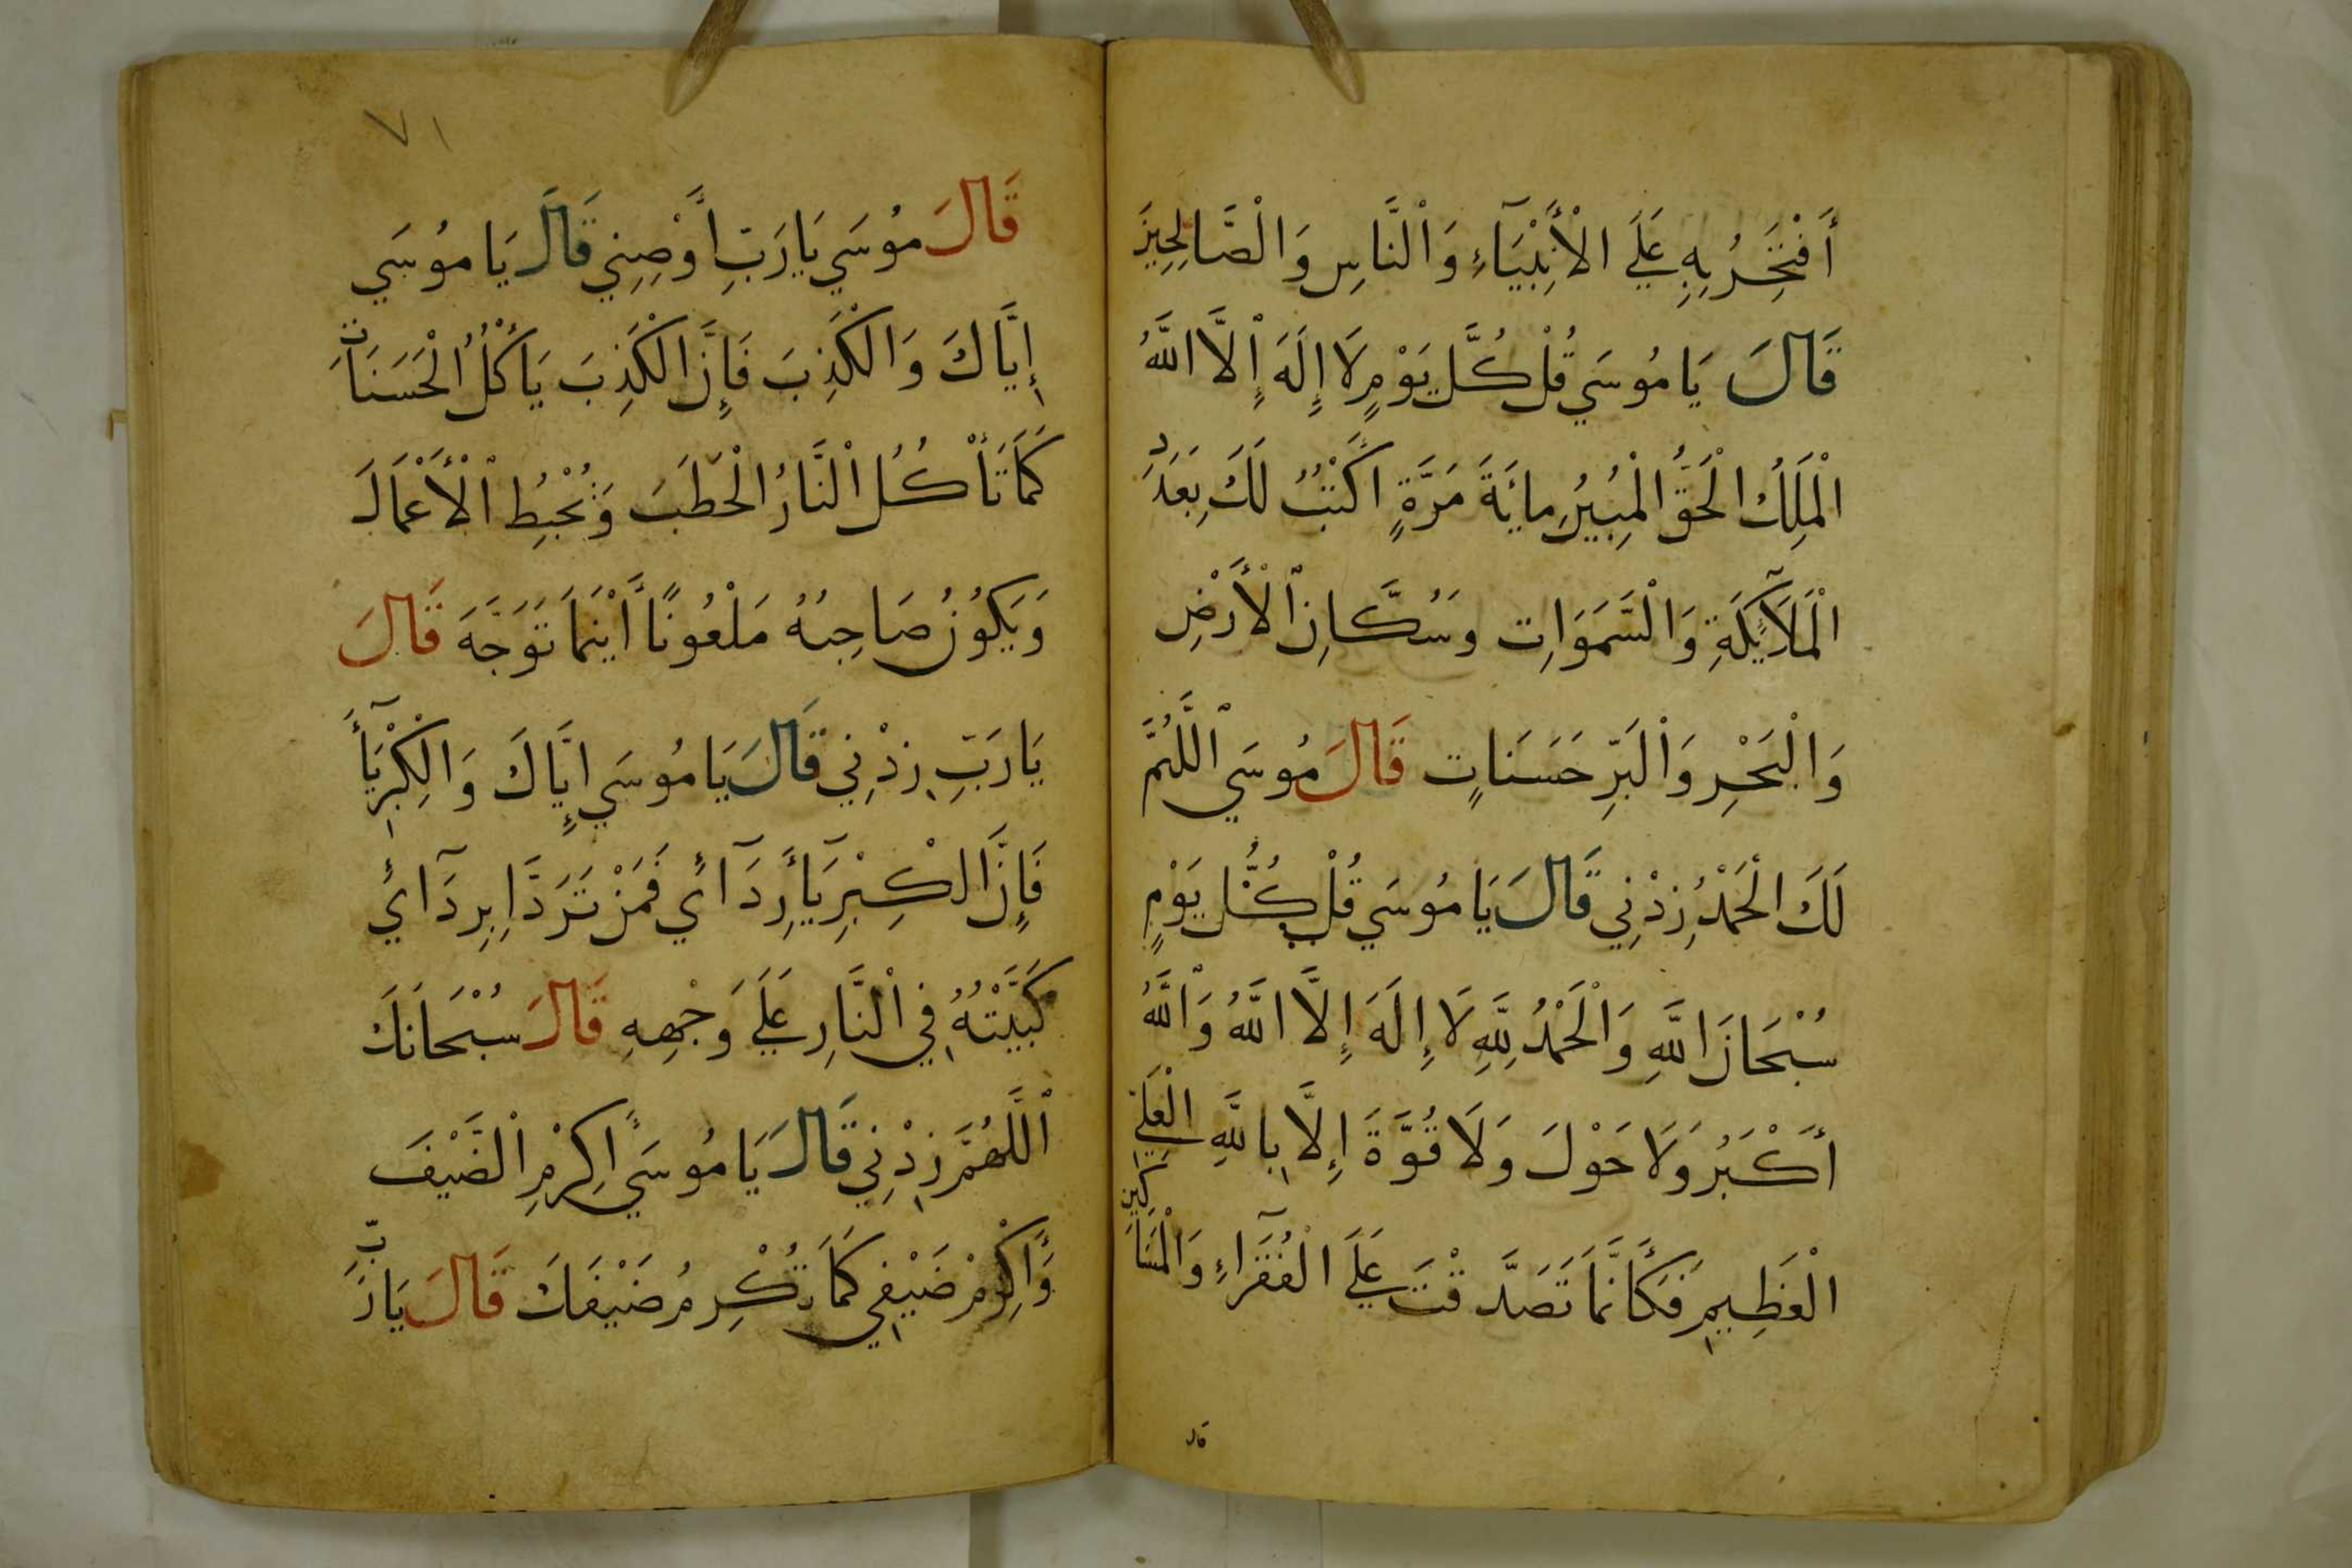 أَفْتَخِرُ بِهِ عَلَي الْأَنْبِيَآءِ وَالْنَّاسِ وَالْصَّالِحِينَ
قَالَ يَا مُوسَي قُلْ كُلَّ يَوْمٍ لَا إِلَهَ إِلَّا اللَّهُ
الْمَلِكُ الْحَقُّ الْمُبِيرُ مايَةَ مَرَّةٍ اكْتُبُ لَكَ بِعَدَدِ
الْمَلَآيِكَةِ وَالْسَّمَوَاتِ وسُكَّانِ الْأَرْضِ
وَالْبَحْرِ وَالْبَرِّ حَسَنَاتٍ قَالَ مُوسَي اللَّهُمَّ
لَكَ الْحَمْدُ زِدْنِي قَالَ يَا مُوسَي قُلْ كُلَّ يَوْمٍ
سُبْحَانَ اللَّهِ وَالْحَمْدُ لِلَّهِ لَا إِلَهَ إِلَّا اللَّهُ وَاللَّهُ
أَكْبَرُ وَلَا حَوْلَ وَلَا قُوَّةَ إِلَّا بِاللَّهِ الْعَلِيِّ
الْعَظِيمِ فَكَأَنَّمَا تَصَدَّقْتَ عَلَي الْفُقَرَآءِ وَالْمَسَاكِينِ
قال
٧١
قَالَ مُوسَي يَا رَبِّ أَوْصِنِي قَالَ يَا مُوسَي
إِيَّاكَ وَالْكَذِبَ فَإِنَّ الْكَذِبَ يَأْكُلُ الْحَسَنَاتَ
كَمَا تَأْكُلُ الْنَّارُ الْحَطَبَ وَيُحْبِطُ الْأَعْمَالَ
وَيَكُونُ صَاحِبُهُ مَلْعُونًا أَيْنَمَا تَوَجَّهَ قَالَ
يَا رَبِّ زِدْنِي قَالَ يَا مُوسَي إِيَّاكَ وَالْكِبْرِيَآءَ
فَإِنَّ الْكِبْرِيَآءَ رِدَآئِي فَمَنْ تَرَدَّا بِرِدَآئِي
كَبَّيْتُهُ فِي الْنَّارِ عَلَي وَجْهِهِ قَالَ سُبْحَانَكَ
اللَّهُمَّ زِدْنِي قَالَ يَا مُوسَي أَكْرِمِ الْضَّيْفَ
وَأَكْرِمْ ضَيْفِي كَمَا تُكْرِمُ ضَيْفَكَ قَالَ يَا رَبِّ